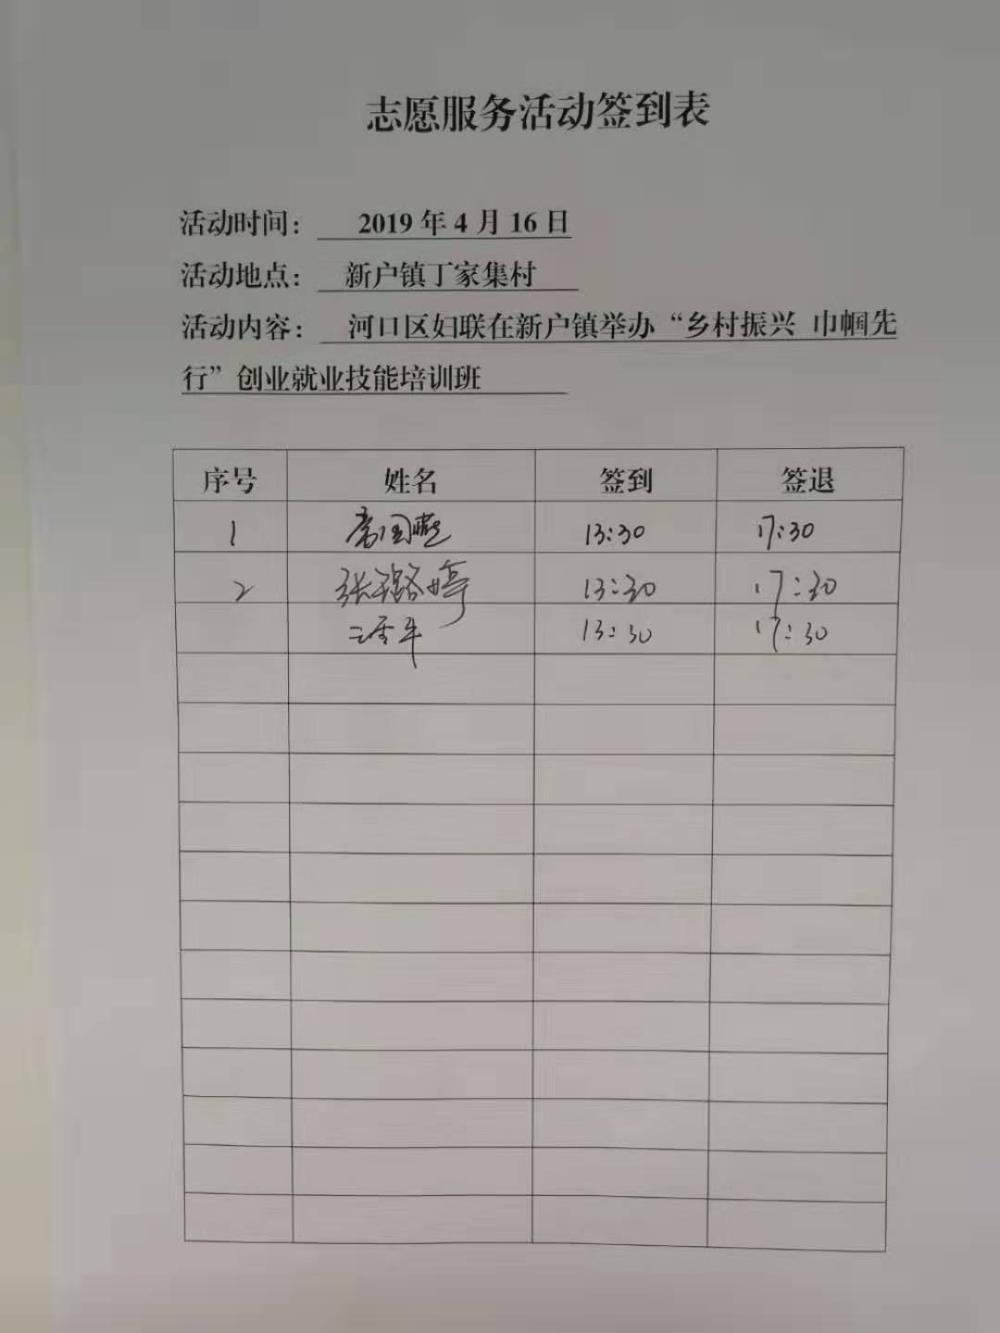 志愿服务活动签到表
活动时间： 2019 年 4 月 16 日
活动地点： 新户镇丁家集村
活动内容： 河口区妇联在新户镇举办“乡村振兴 巾帼先
行”创业就业技能培训班
序号 姓名 签到 签退
1 13:30 17:30
2 张璐婷 13:30 17:30
13:30 17:30